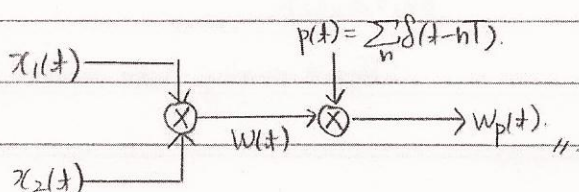 p(t) = ∑ₙ δ(t-nT).
x₁(t)
w(t)
wₚ(t).
x₂(t)